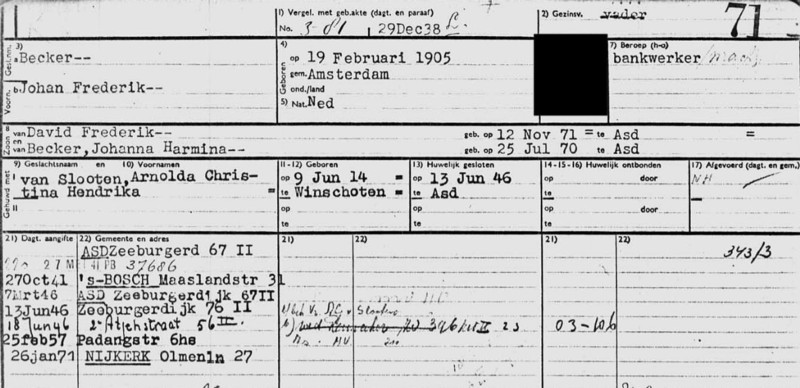 1) Vergel. met geb.akte (dagt. en paraaf)
No. 3-81 29Dec38
2) Gezinsv. vader
71
3)
Gesl.nm. a Becker--
Voorn. b Johan Frederik--
4)
Geboren op 19 Februari 1905
gem. Amsterdam
ond./land
5) Nat. Ned
7) Beroep (h-a)
bankwerker/mach
Zoon van David Frederik-- geb. op 12 Nov 71 = te Asd =
en van Becker, Johanna Harmina-- geb. op 25 Jul 70 te Asd
9) Geslachtsnaam en 10) Voornamen
11-12) Geboren
13) Huwelijk gesloten
14-15-16) Huwelijk ontbonden
17) Afgevoerd (dagt. en gem.)
Gehuwd met
I van Slooten, Arnolda Chris-
tina Hendrika =
op 9 Jun 14 =
te Winschoten =
op 13 Jun 46
te Asd
op door
te
NH
II
op
te
op
te
op door
te
21) Dagt. aangifte 22) Gemeente en adres 21) 22) 21) 22)
ASD Zeeburgerd 67 II
343/3
27 M 41 PB 37686
27Oct41 's-BOSCH Maaslandstr 31
7Mrt46 ASD Zeeburgerdijk 67II
13Jun46 Zeeburgerdijk 76 II
18 Jun 46 2e Atjehstraat 56 II
03-106
25feb57 Padangstr 6hs
26jan71 NIJKERK Olmenln 27